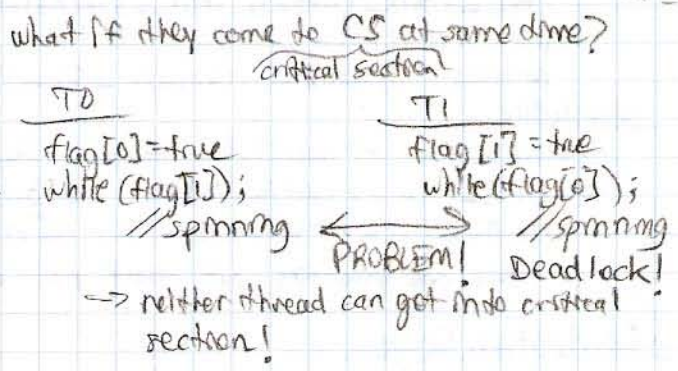 what if they come to CS at same time?
critical section
T0 T1
flag[0]=true flag[1]=true
while(flag[1]); while(flag[0]);
//spinning //spinning
PROBLEM! Deadlock!
→ neither thread can get into critical
section!